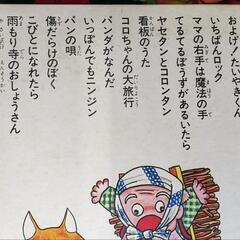 およげ!たいやきくん
いちばんロック
ママの右手は魔法の手
てるてるぼうずがあるいたら
ヤセタンとコロンタン
看板のうた
コロちゃんの大旅行
パンダがなんだ
いっぽんでもニンジン
パンの唄
傷だらけのぼく
こびとになれたら
雨もり寺のおしょうさん